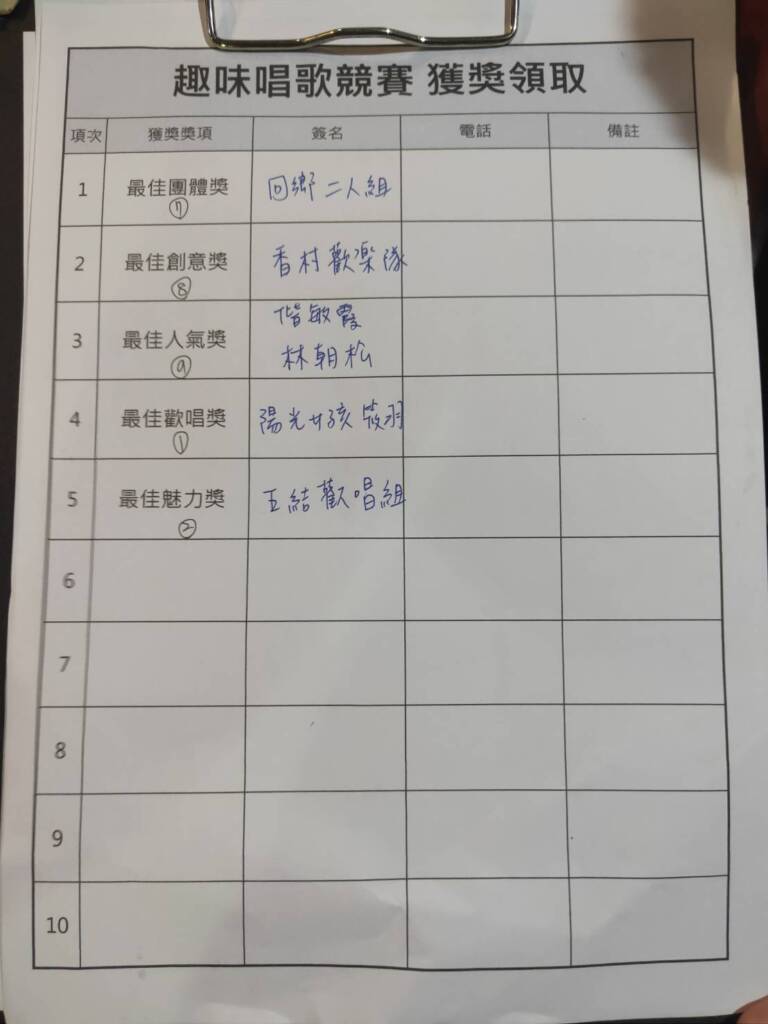 趣味唱歌競賽 獲獎領取
項次 獲獎獎項 簽名 電話 備註
1 最佳團體獎 回鄉二人組
⑦
2 最佳創意獎 香村歡樂隊
⑧
3 最佳人氣獎 敏霞
林朝松
⑨
4 最佳歡唱獎 陽光女孩筱羽
①
5 最佳魅力獎 五結歡唱組
②
6
7
8
9
10